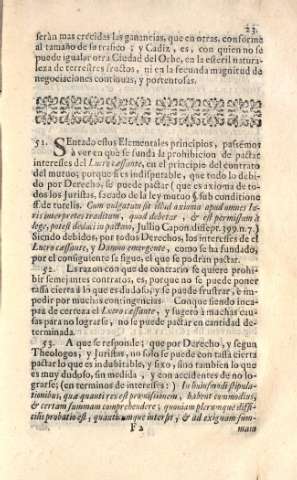 23.
seràn mas crecidas las ganancias, que en otras, conforme
al tamaño de su trafico; y Cadiz, es, con quien no se
puede igualar otra Ciudad del Orbe, en la esteril natura-
leza de terrestres frutos, ni en la fecunda magnitud de
negociaciones continuas, y portentosas.
51. SEntado estos Elementales principios, passèmos
à ver en què se funda la prohibicion de pactar
interesses del Lucro cessante, en el principio del contrato
del mutuo; porque si es indispensable, que todo lo debi-
do por Derecho, se puede pactar (que es axioma de to-
dos los Juristas, sacado de la ley mutuo § sub conditione
ff. de rutelis. Cum vulgatum sit illud axioma apud omnes Iu-
ris interpretes traditum, quod debetur, & est permissum à
lege, potest deduci in pactum, Jullio Capon. discept. 399. n. 7.)
Siendo debidos, por todos Derechos, los interesses de el
Lucro cessante, y Damno emergente, como se ha fundado,
por el consiguiente se sigue, el que se podràn pactar.
52. La razon con que de contrario se quiere prohi-
bir semejantes contratos, es, porque no se puede poner
tassa cierta à lo que es dudoso, y se puede frustrar, è im-
pedir por muchas contingencias. Conque siendo inca-
paz de certeza el Lucro cessante, y sugeto à muchas cau-
sas para no lograrse, no se puede pactar en cantidad de-
terminada.
53. A que se responde; que por Derecho, y segun
Theologos, y Juristas, no solo se puede con tassa cierta
pactar lo que es indubitable, y fixo, sino tambien lo que
es muy dudoso, sin medida, y con accidentes de no lo-
grarse; (en terminos de interesses:) In huiusmodi stipula-
tionibus, quæ quanti res est promissionem, habent commodius,
& certam summam comprehendere; quoniam plerumque diffi-
cilis probatio est, quanti cuique intersit, & ad exiguam sum-
F 2 mam